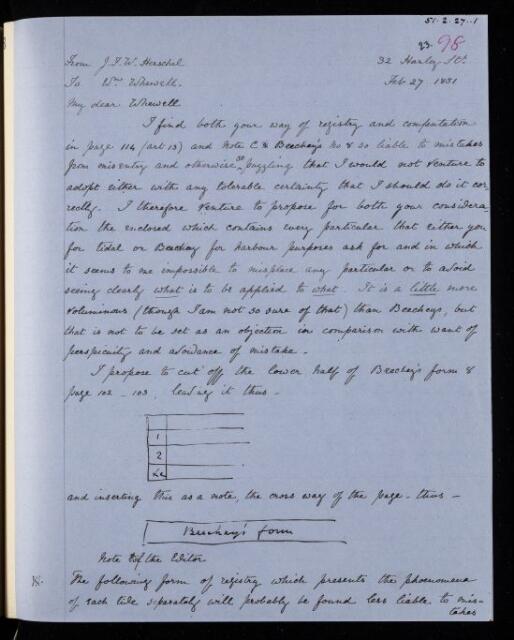 51. 2. 27. 1
23. 98
From J. F. W. Herschel
32 Harley St.
To Wm Whewell.
Feb 27. 1851
My dear Whewell
I find both your way of registry and computation
in page 114 (art 15) and Note C & Beechey's No 8 so liable to mistakes
from misentry and otherwise so puzzling that I would not venture to
adopt either with any tolerable certainty that I should do it cor-
rectly. I therefore venture to propose for both your considera-
tion the enclosed which contains every particular that either you
for tidal or Beechey for harbour purposes ask for and in which
it seems to me impossible to misplace any particular or to avoid
seeing clearly what is to be applied to what. It is a little more
voluminous (though I am not so sure of that) than Beecheys, but
that is not to be set as an objection in comparison with want of
perspicuity and avoidance of mistake.
I propose to cut off the lower half of Beechey's form 8
page 102 - 103, leaving it thus -
1
2
&c
and inserting this as a note, the cross way of the page - thus -
Beechey's form
Note of the Editor
The following form of registry which presents the phoenomena
of each tide separately will probably be found less liable to mis-
takes